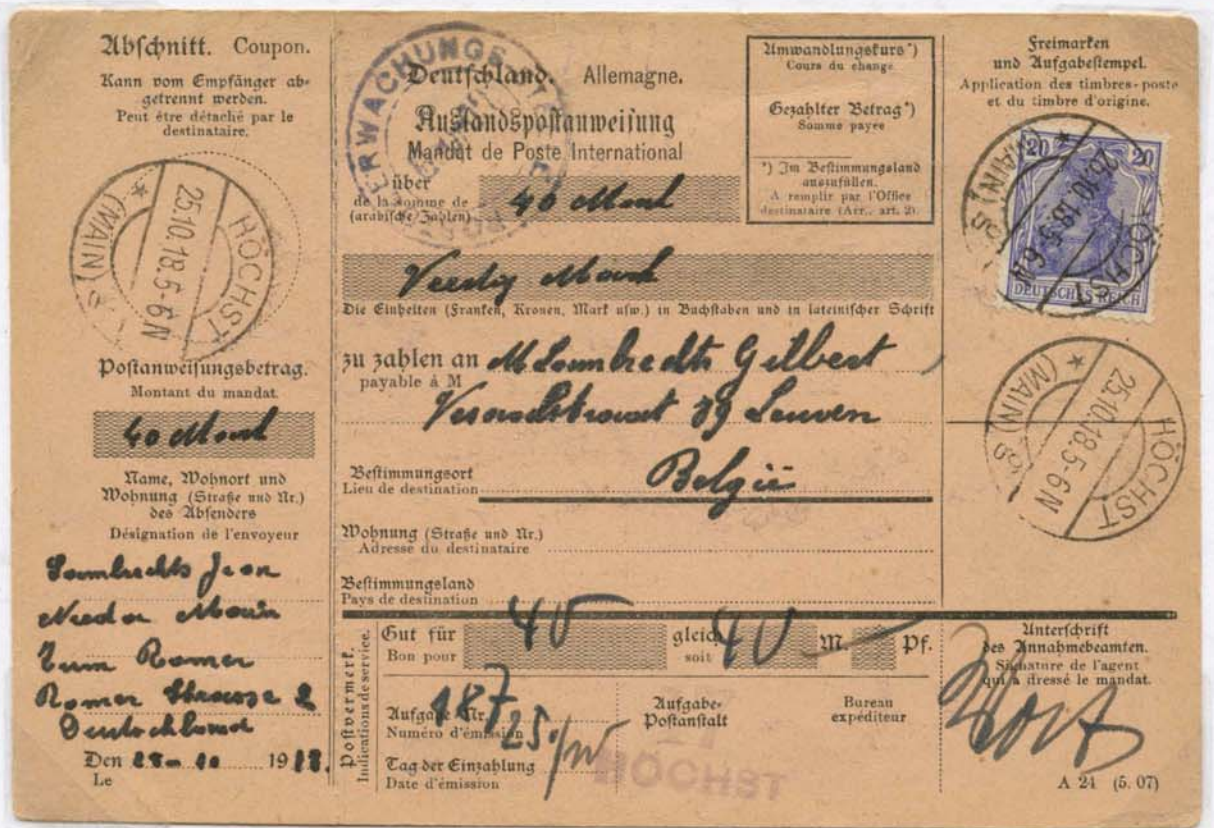 Abschnitt. Coupon.
Kann vom Empfänger ab=
getrennt werden.
Peut être détaché par le
destinataire.
HÖCHST
* (MAIN)
25.10.18.5-6N
Postanweisungsbetrag.
Montant du mandat.
40 Mark
Name, Wohnort und
Wohnung (Straße und Nr.)
des Absenders
Désignation de l'envoyeur
Lambrechts Jean
Nieder
Zum Romer
Romer Strasse 2
Deutschland
Den 25-10 1918.
Le
ERWACHUNGS
Deutschland. Allemagne.
Auslandspostanweisung
Mandat de Poste International
über
de la somme de
(arabische Zahlen)
40 Mark
Veertig Mark
Die Einheiten (Franken, Kronen, Mark usw.) in Buchstaben und in lateinischer Schrift
zu zahlen an M Lambrechts Gilbert
payable á M
39 Leuven
Bestimmungsort
Lieu de destination
België
Wohnung (Straße und Nr.)
Adresse du destinataire
Bestimmungsland
Pays de destination
Umwandlungskurs*)
Cours du change
Gezahlter Betrag*)
Somme payee
*) Im Bestimmungsland
auszufüllen.
A remplir par l'Office
destinataire (Arr., art. 2).
Freimarken
und Aufgabestempel.
Application des timbres-poste
et du timbre d'origine.
20 20
DEUTSCHES REICH
HÖCHST
* (MAIN)
25.10.18.5-6N
HÖCHST
* (MAIN)
25.10.18.5-6N
Postvermerk.
Indications de service.
Gut für
Bon pour
40
gleich
soit
40 M Pf.
Aufgabe-Nr.
Numéro d'émission
187
Aufgabe-
Postanstalt
Bureau
expéditeur
Tag der Einzahlung
Date d'émission
25/
HÖCHST
Unterschrift
des Annahmebeamten.
Signature de l'agent
qui a dressé le mandat.
A 24 (5. 07)